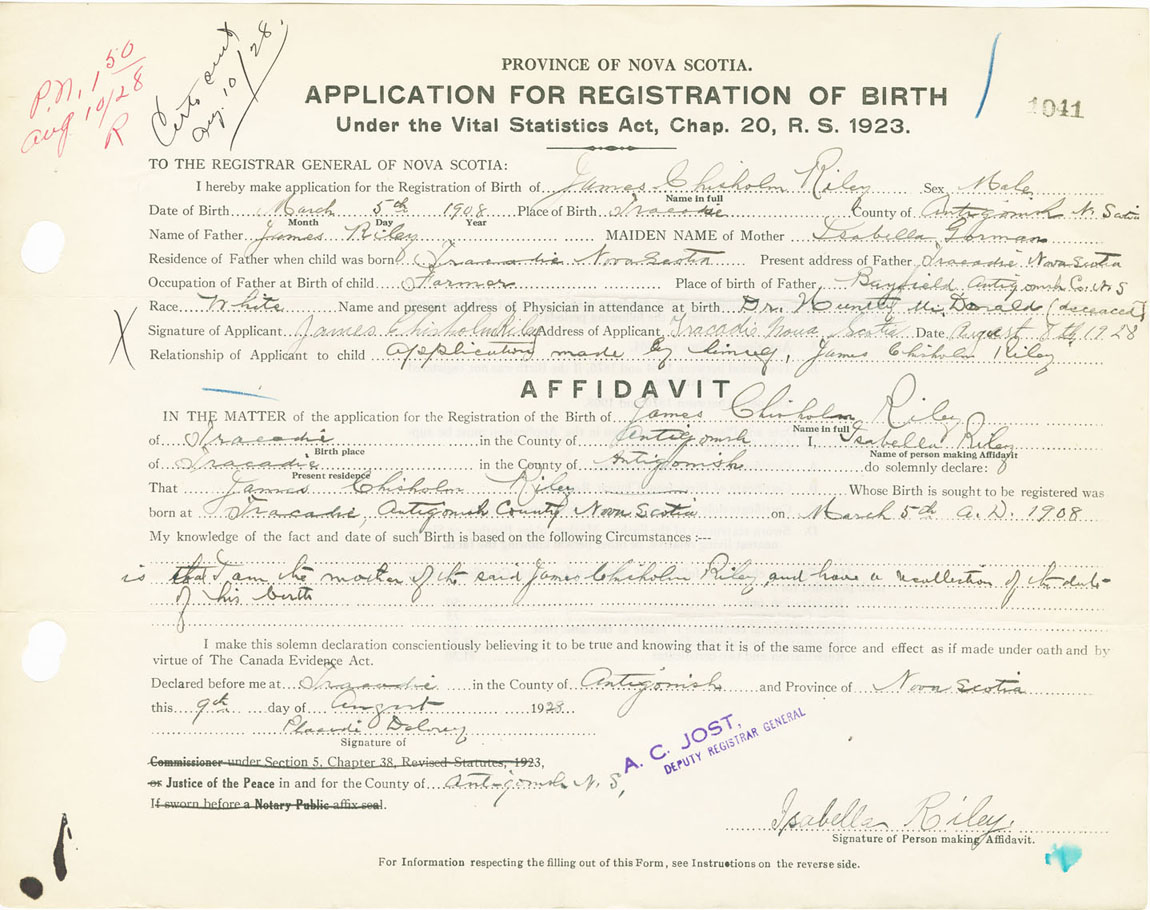 P.N. 1 50
Aug 10/28
R
Certs sent
Aug. 10/28.
1041
PROVINCE OF NOVA SCOTIA.
APPLICATION FOR REGISTRATION OF BIRTH
Under the Vital Statistics Act, Chap. 20, R. S. 1923.
TO THE REGISTRAR GENERAL OF NOVA SCOTIA:
I hereby make application for the Registration of Birth of James Chisholm Riley Sex Male
Name in full
Date of Birth March 5th 1908 Place of Birth Tracadie County of Antigonish N. Scotia
Month Day Year
Name of Father James Riley MAIDEN NAME of Mother Isabella Gorman
Residence of Father when child was born Tracadie Nova Scotia Present address of Father Tracadie Nova Scotia
Occupation of Father at Birth of child Farmer Place of birth of Father Bayfield Antigonish Co. N S
Race White Name and present address of Physician in attendance at birth Dr. Huntly McDonald (deceased)
X Signature of Applicant James Chisholm Riley Address of Applicant Tracadie Nova Scotia Date August 8th 1928
Relationship of Applicant to child Application made by himself, James Chisholm Riley
AFFIDAVIT
IN THE MATTER of the application for the Registration of the Birth of James Chisholm Riley
Name in full
of Tracadie in the County of Antigonish I, Isabella Riley
Birth place Name of person making Affidavit
of Tracadie in the County of Antigonish do solemnly declare:
Present residence
That James Chisholm Riley Whose Birth is sought to be registered was
born at Tracadie, Antigonish County Nova Scotia on March 5th A. D. 1908
My knowledge of the fact and date of such Birth is based on the following Circumstances :---
is that I am the mother of the said James Chisholm Riley and have a recollection of the date
of his birth
I make this solemn declaration conscientiously believing it to be true and knowing that it is of the same force and effect as if made under oath and by
virtue of The Canada Evidence Act.
Declared before me at Tracadie in the County of Antigonish and Province of Nova Scotia
this 9th day of August 1928.
Placide Delorey
Signature of
A. C. JOST,
DEPUTY REGISTRAR GENERAL
Commissioner under Section 5, Chapter 38, Revised Statutes, 1923,
or Justice of the Peace in and for the County of Antigonish N. S,
If sworn before a Notary Public affix seal.
Isabella Riley
Signature of Person making Affidavit.
For Information respecting the filling out of this Form, see Instructions on the reverse side.